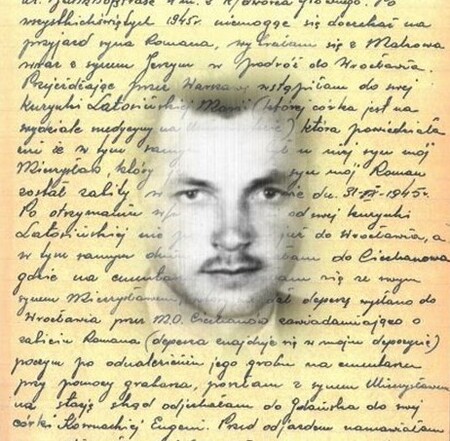 wszystkich świętych 1945r. niemogąc się doczekać na
przyjazd syna Romana, wybrałam się z Makowa
wraz z synem Jerzym w podróż do Wrocławia.
Przejeżdżając przez Warszawę wstąpiłam do swej
kuzynki Latosińskiej Marii (której córka jest na
wydziale medycyny na ), która powiedziała
mi że w tym samym u niej syn mój
Mieczysław, który syn mój Roman
został zabity w dn. 31-XII-1945r.
Po otrzymaniu od swej kuzynki
Latosińskiej nie już do Wrocławia, a
w tym samym dniu do Ciechanowa
gdzie na cmentarzu się ze swym
synem Mieczysławem, depeszę wysłano do
Wrocławia przez M.O. Ciechanów zawiadamiająco o
zabiciu Romana (depesza znajduje się w mojm depozycie)
poczym po odnalezieniu jego grobu na cmentarzu
przy pomocy grabarza, poszłam z synem Mieczysławem
na stację skąd odjechałam do Gdańska do swej
córki Eugenii. Przed odjazdem namawiałam